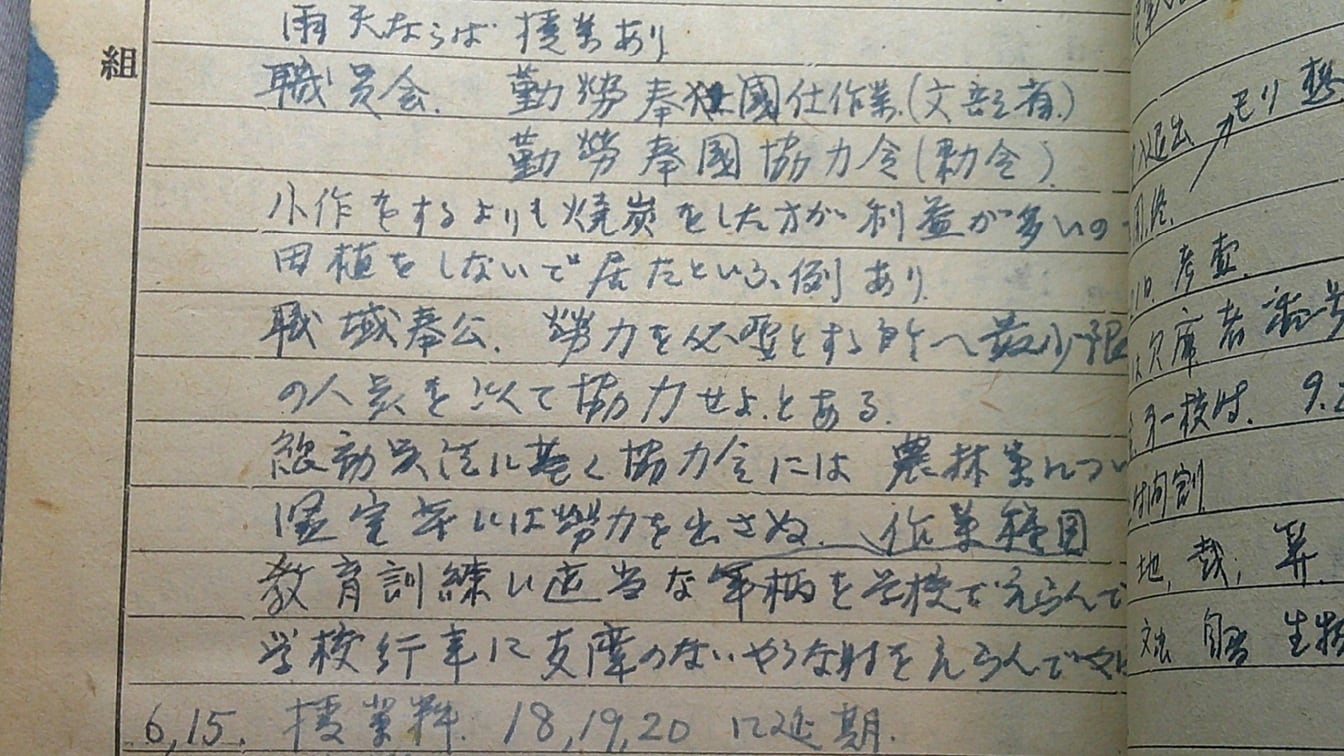 組
雨天ならば授業あり
職員会. 勤勞奉仕國仕作業.(文部省.)
勤勞奉國協力令(勅令).
小作をするよりも燒炭をした方が利益が多いの
田植をしないで居たといふ、例あり.
職域奉公. 勞力を必要とする所へ最少限
の人員を以て協力せよ.とある.
総動員法に基く協力令には 農林業につい
温室等には勞力を出さぬ. 作業種目
教育訓練に適当な事柄を学校でえらんで
学校行事に支障のないやうな時をえらんで
6,15. 授業料. 18,19,20 に延期.
モリ
考査.
欠席者番号
第一校時. 9.
時間割
地,
生物